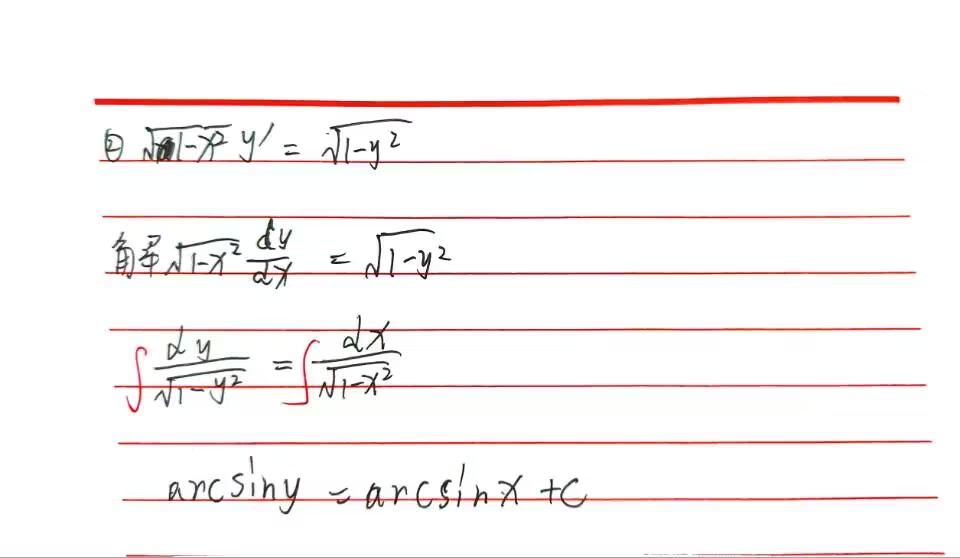 ② √1-x² y' = √1-y²
解 √1-x² dy/dx = √1-y²
∫ dy/√1-y² = ∫ dx/√1-x²
arcsiny = arcsinx + C